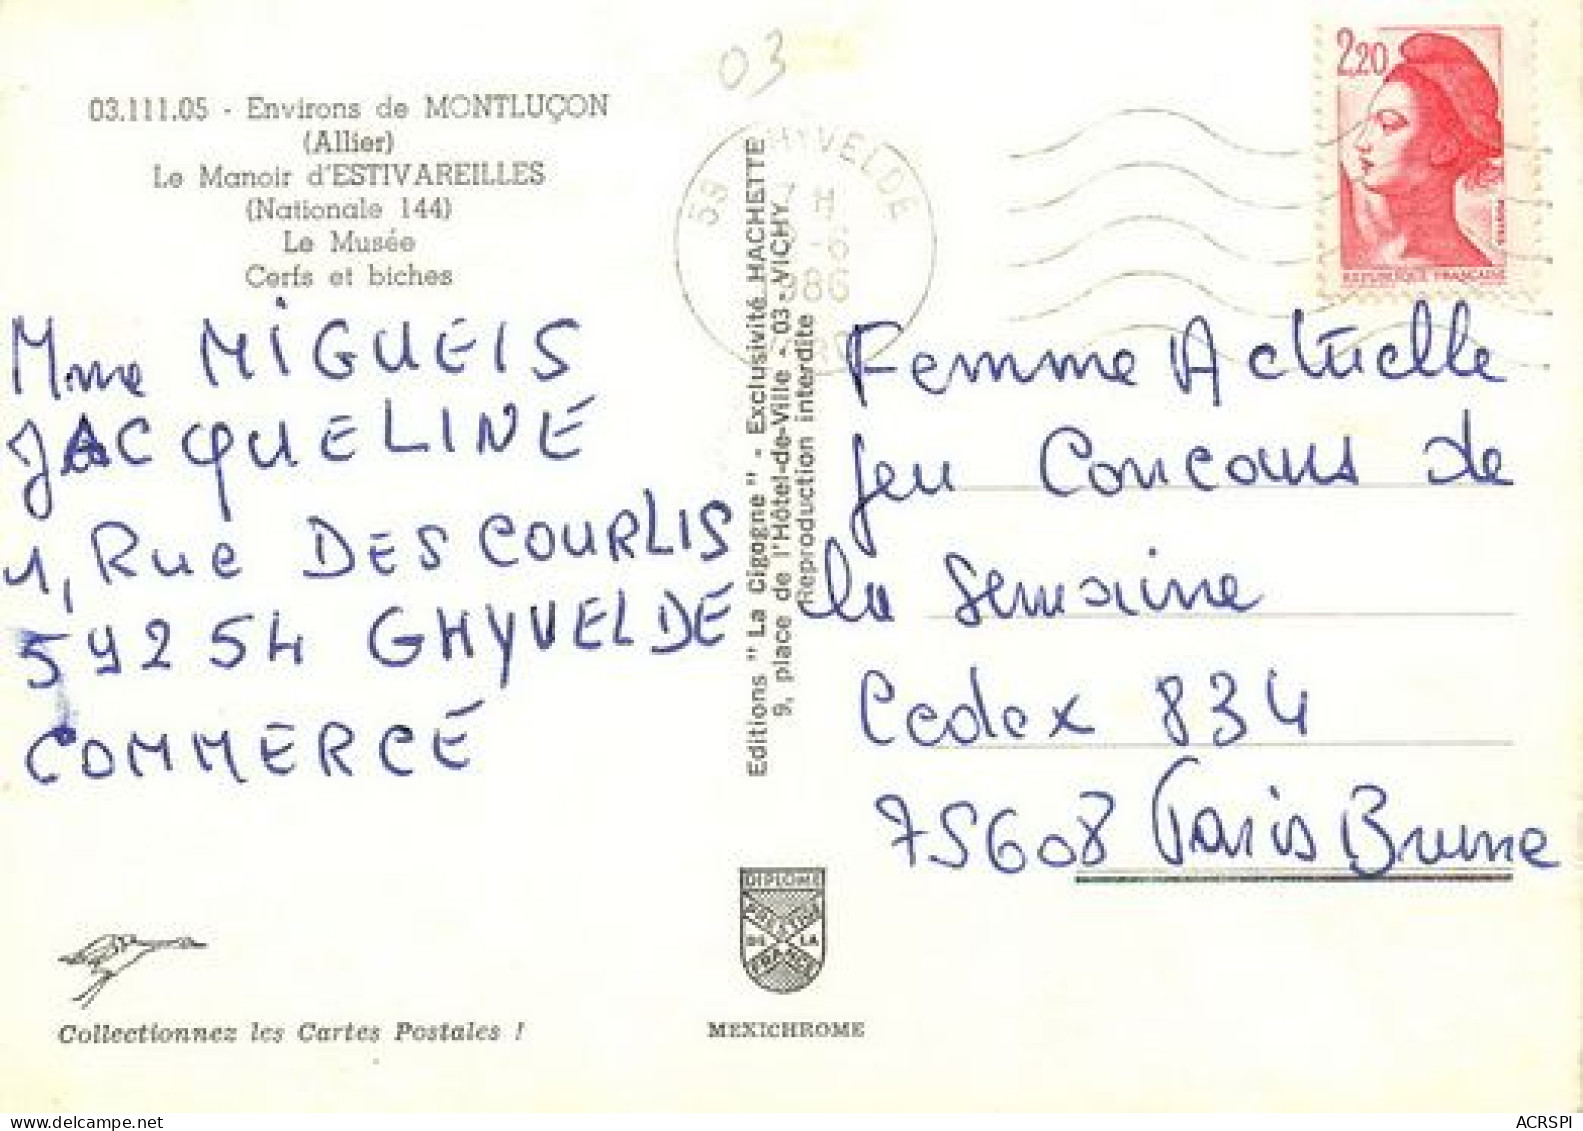 03
03.111.05 - Environs de MONTLUÇON
(Allier)
Le Manoir d'ESTIVAREILLES
(Nationale 144)
Le Musée
Cerfs et biches
Mme MIGUEIS
JACQUELINE
1, Rue DES COURLIS
59254 GHYVELDE
COMMERCE
Editions " La Cigogne " - Exclusivité HACHETTE
9, place de l'Hôtel-de-Ville - 03 - VICHY
Reproduction interdite
59 GHYVELDE
H
-6
986
2,20
POSTES
REPUBLIQUE FRANÇAISE
Femme Actuelle
Jeu Concours de
la Semaine
Cedex 834
75608 Paris Brune
DIPLOME
PRESTIGE
DE LA
FRANCE
MEXICHROME
Collectionnez les Cartes Postales !
ACRSPI